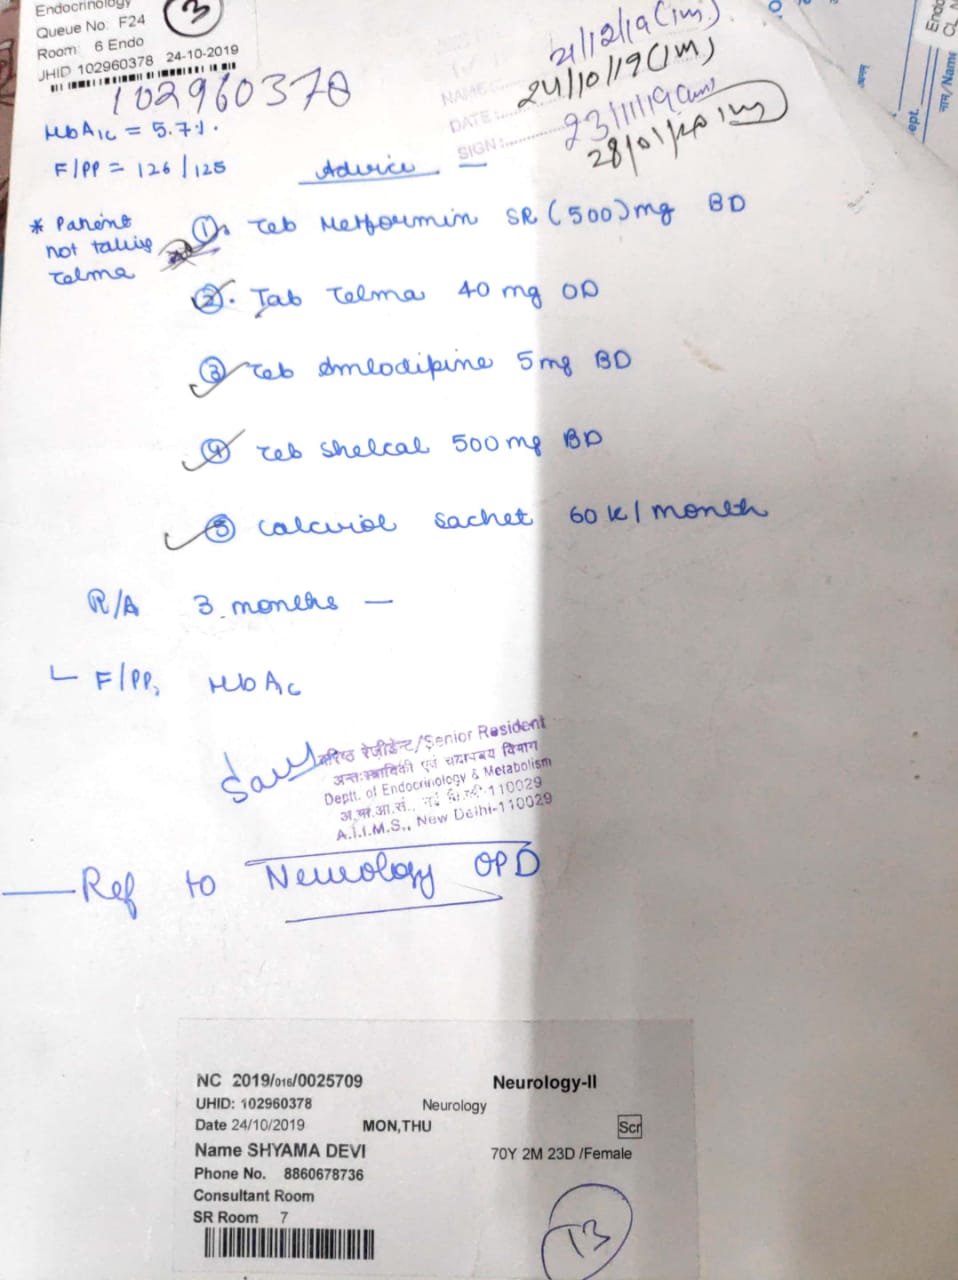 Endocrinology
Queue No. F24
Room: 6 Endo
UHID 102960378 24-10-2019
3
102960378
21/12/19 (1m)
24/10/19 (1m)
23/11/19 (1m)
28/01/20 1m
NAME:
DATE:
SIGN:
HbA1c = 5.7%.
F/PP = 126/125
Advice
* Patient
not taking
Telma
① Tab Metformin SR (500)mg BD
②. Tab Telma 40 mg OD
③ Tab Amlodipine 5mg BD
④ Tab Shelcal 500mg BD
⑤ Calcirol sachet 60K/month
R/A 3 months —
F/PP, HbA1c
वरिष्ठ रेजीडेन्ट/Senior Resident
अन्तःस्त्राविकी एवं चयापचय विभाग
Deptt. of Endocrinology & Metabolism
अ.भा.आ.सं., नई दिल्ली-110029
A.I.I.M.S., New Delhi-110029
Ref to Neurology OPD
NC 2019/016/0025709 Neurology-II
UHID: 102960378 Neurology
Date 24/10/2019 MON,THU Scr
Name SHYAMA DEVI 70Y 2M 23D /Female
Phone No. 8860678736
Consultant Room
SR Room 7
13
ept.
नाम/Name